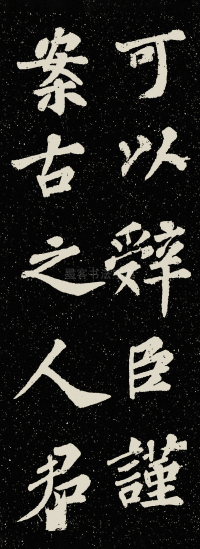 可以辤臣謹
案古之人君